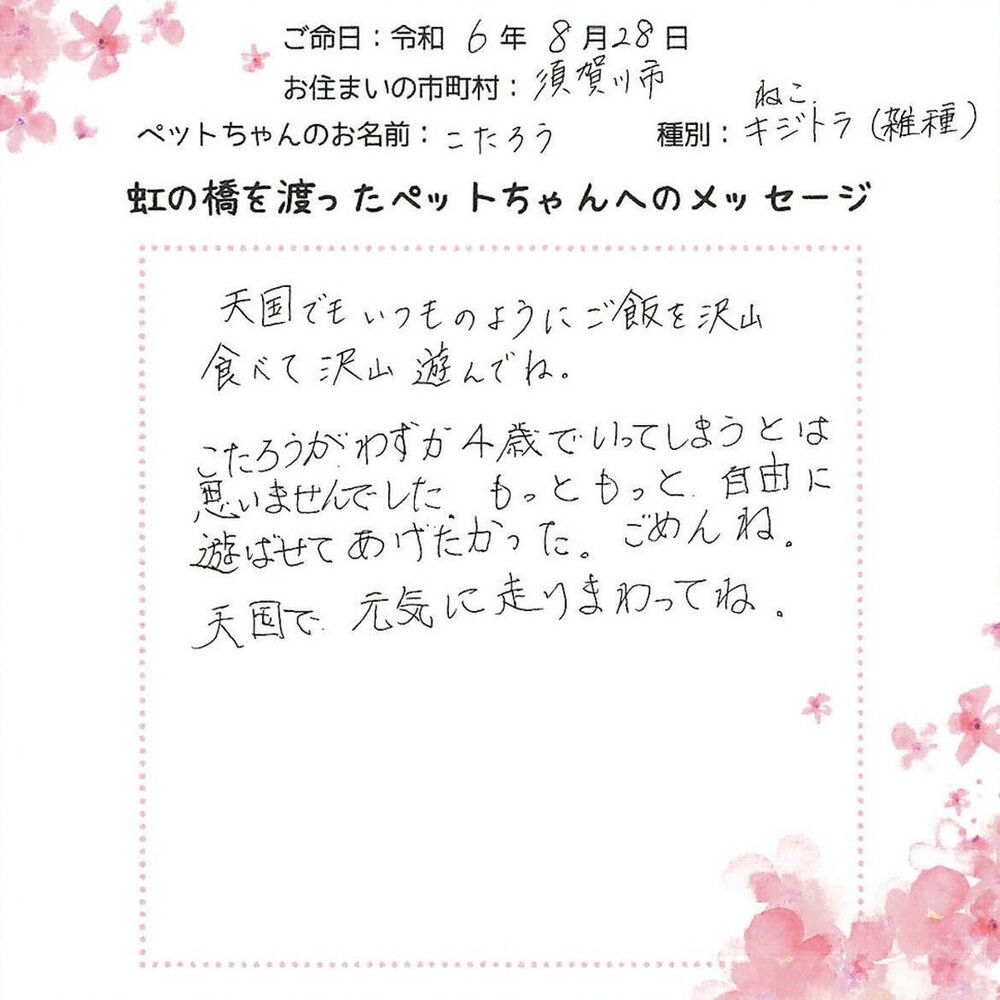 ご命日：令和 6 年 8 月 28 日
お住まいの市町村：須賀川市
ペットちゃんのお名前：こたろう 種別：ねこ キジトラ（雑種）
虹の橋を渡ったペットちゃんへのメッセージ
天国でもいつものようにご飯を沢山
食べて沢山遊んでね。
こたろうがわずか4歳でいってしまうとは
思いませんでした。もっともっと、自由に
遊ばせてあげたかった。ごめんね。
天国で、元気に走りまわってね。